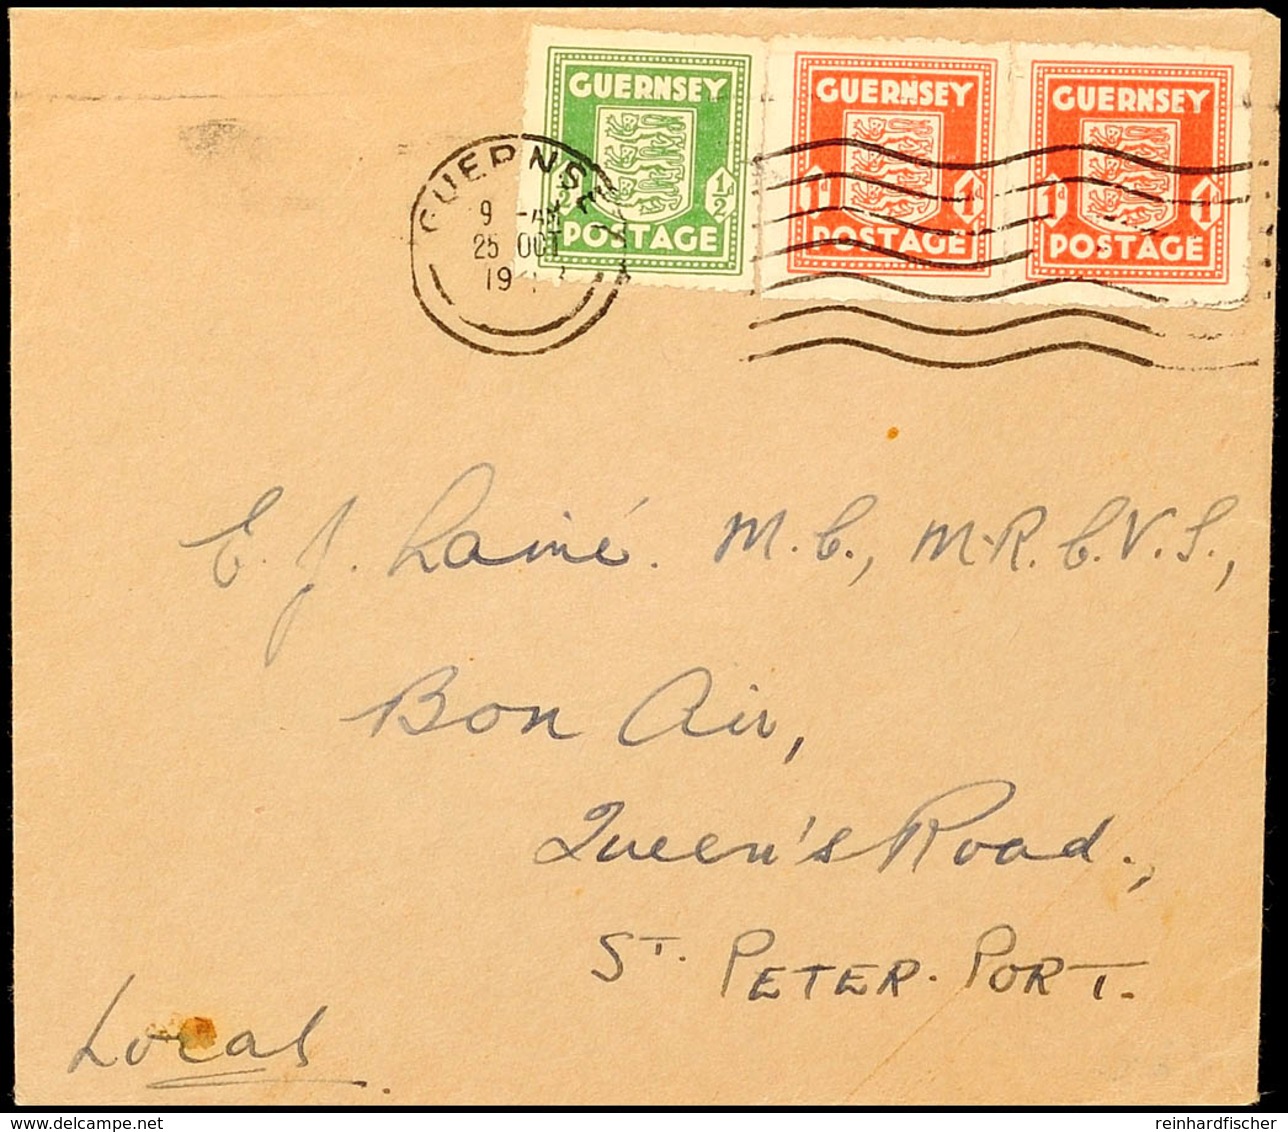 GUERNSEY
½d ½d
POSTAGE
GUERNSEY
1d 1d
POSTAGE
GUERNSEY
1d 1d
POSTAGE
GUERNSEY
9 - AM
25 OCT
E. J. Lainé. M.C., M.R.C.V.S.,
Bon Air,
Queen's Road.,
ST. PETER-PORT.
Local.
reinhardfischer